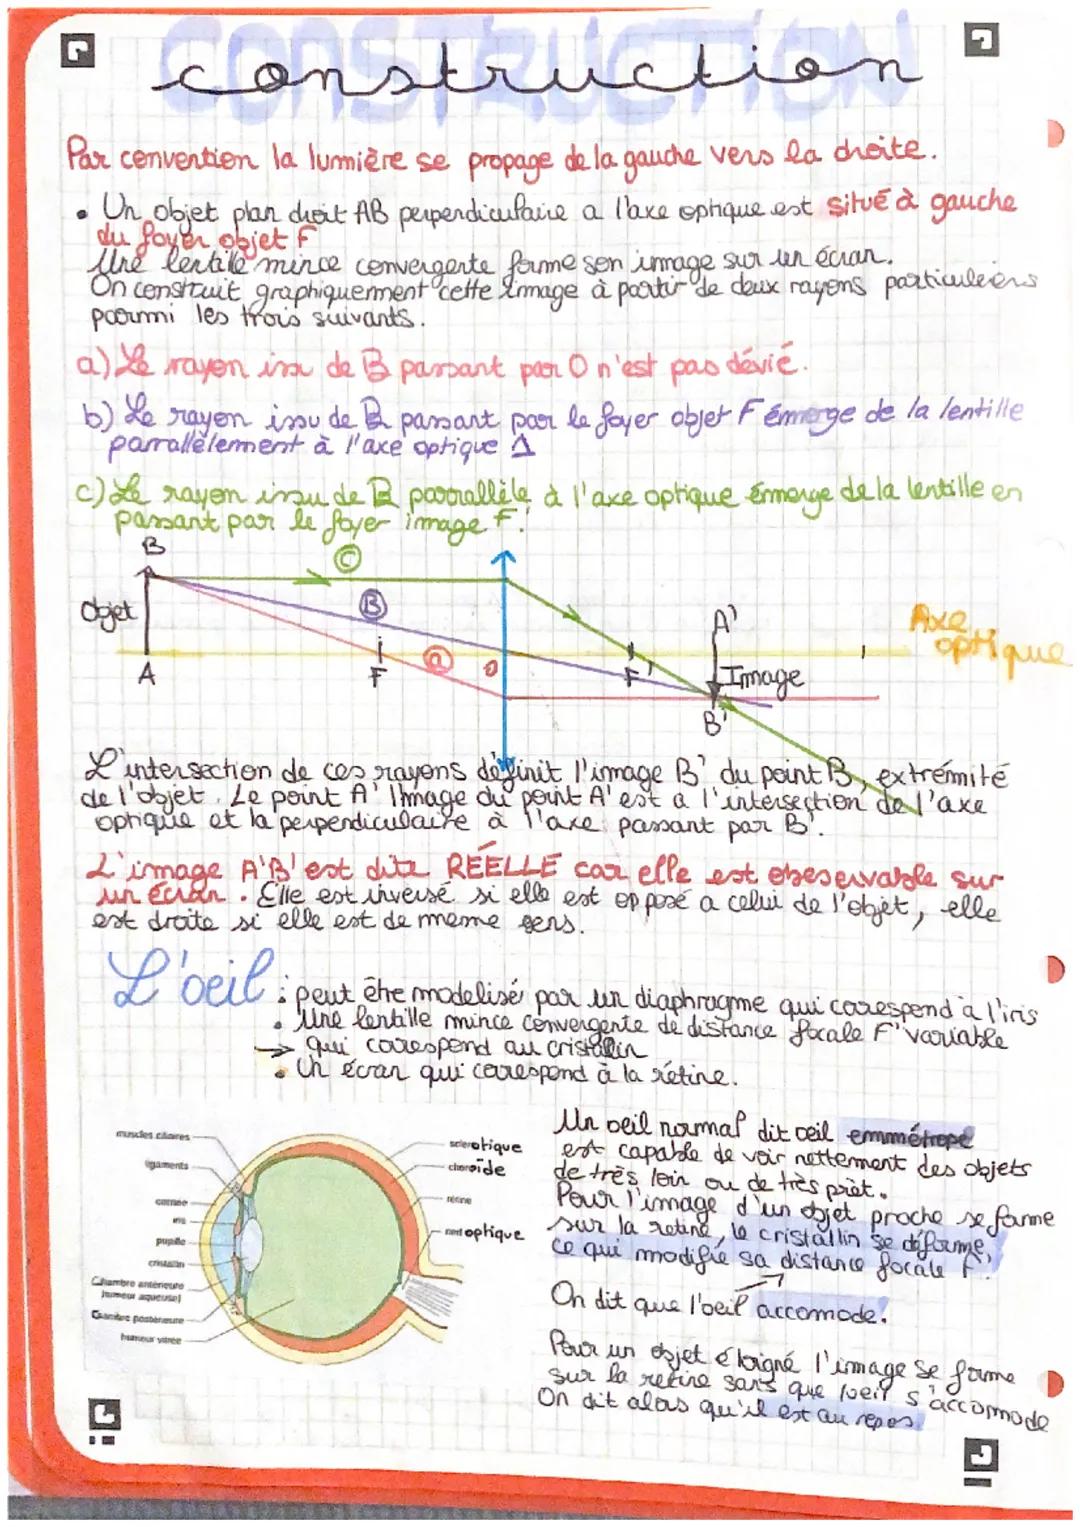 CONSTRUCTION
construction
Par convention la lumière se propage de la gauche vers la droite.
• Un objet plan droit AB perpendiculaire a l'axe optique est situé à gauche
du foyer objet F
Une lentille mince convergente forme son immage sur un écran.
On construit graphiquement cette image à partir de deux rayons particuleiers
parmi les trois suivants.
a) Le rayon issu de B passant par O n'est pas dévié.
b) Le rayon issu de B passant par le foyer objet F émerge de la lentille
parrallèlement à l'axe optique Δ
c) Le rayon issu de B parrallèle à l'axe optique émerge de la lentille en
passant par le foyer image F'
B
C
Objet
B
A'
Axe
optique
A
F
a
O
F'
Image
B'
L'intersection de ces rayons définit l'image B' du point B, extrémité
de l'objet. Le point A' l'image du point A' est a l'intersection de l'axe
optique et la perpendiculaire à l'axe passant par B'.
L'image A'B' est dite RÉELLE car elle est obeservable sur
un écran. Elle est inversé si elle est opposé a celui de l'objet, elle
est droite si elle est de meme sens.
L'oeil : peut être modelisé par un diaphragme qui correspond à l'iris
• Une lentille mince convergente de distance focale F' variable
→ qui correspond au cristallin
• Un écran qui correspond à la rétine.
muscles ciliaires
ligaments
cornée
iris
pupille
cristallin
Chambre antérieure
(humeur aqueuse)
Chambre postérieure
humeur vitrée
sclérotique
choroïde
rétine
nerf optique
Un oeil normal dit oeil emmétrope
est capable de voir nettement des objets
de très loin ou de très prèt.
Pour l'image d'un objet proche se forme
sur la retine, le cristallin se déforme,
ce qui modifie sa distance focale F'.
On dit que l'oeil accommode.
Pour un objet éloigné l'image se forme
sur la retine sans que l'oeil s'accommode
On dit alors qu'il est au repos.